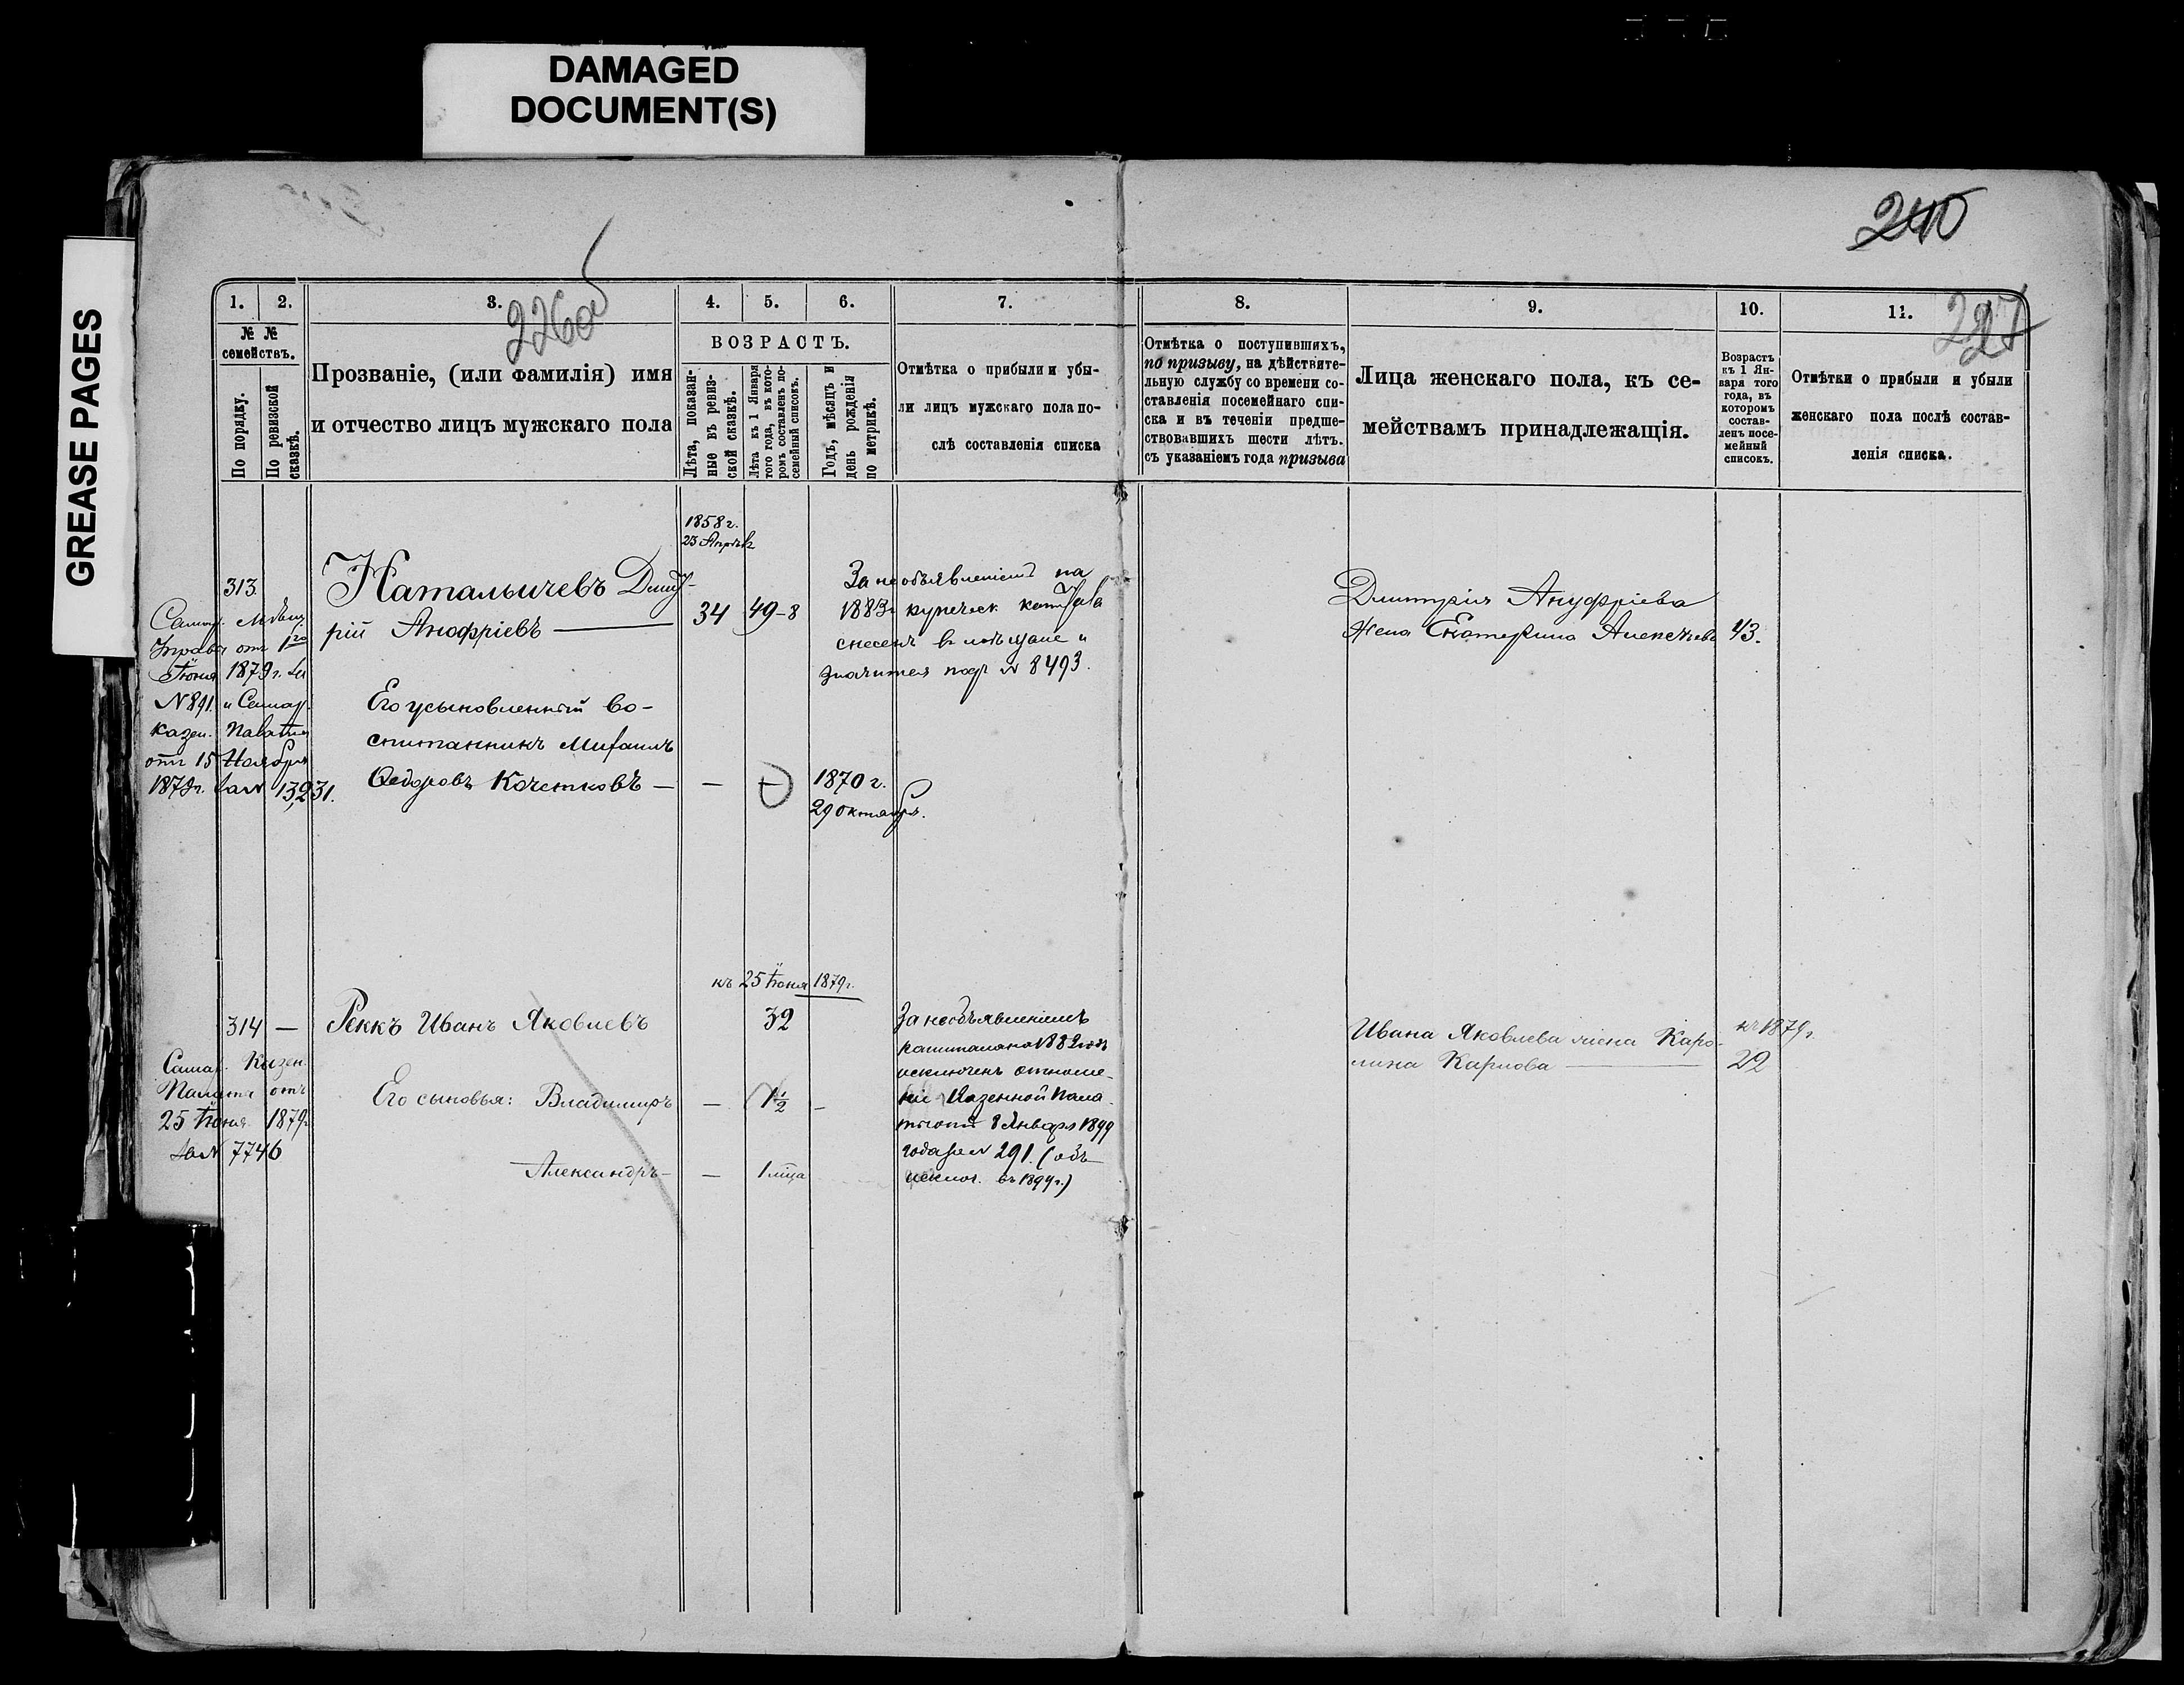 DAMAGED
DOCUMENT(S)
GREASE PAGES
240
226об
227
1.
2.
3.
4.
5.
6.
7.
8.
9.
10.
11.
№ №
семействъ.
По порядку.
По ревизской
сказкѣ.
Прозваніе, (или фамилія) имя
и отчество лицъ мужскаго пола
ВОЗРАСТЪ.
Лѣта, показан-
ные въ ревиз-
ской сказкѣ.
Лѣта къ 1 Января
того года, въ кото-
ромъ составленъ по-
семейный списокъ.
Годъ, мѣсяцъ и
день рожденія
по метрикѣ.
Отмѣтка о прибыли и убы-
ли лицъ мужскаго пола по-
слѣ составленія списка
Отмѣтка о поступившихъ,
по призыву, на дѣйствите-
льную службу со времени со-
ставленія посемейнаго спи-
ска и въ теченіи предше-
ствовавшихъ шести лѣтъ.
съ указаніемъ года призыва
Лица женскаго пола, къ се-
мействамъ принадлежащія.
Возрастъ
къ 1 Ян-
варя того
года, въ
которомъ
состав-
ленъ посе-
мейный
списокъ.
Отмѣтки о прибыли и убыли
женскаго пола послѣ состав-
ленія списка.
1858 г.
23 Апрѣля
313.
Самар. Мѣщ.
Управы отъ 1го
Іюня 1879 г. за
N 891. и Самар.
казен. Палаты
отъ 15 Ноября
1879 г. за N 13,231.
Натальичевъ Дмит-
рій Анофріевъ
34
49-8
За необъявленіемъ на
1883 г. купеческ. капитала
снесенъ въ мѣщане и
значится подъ N 8493.
Дмитрія Ануфріева
жена Екатерина Алексѣева
43.
Его усыновленный во-
спитанникъ Михаилъ
Ѳедоровъ Кочетковъ —
—
1870 г.
29 октября.
къ 25 Іюня 1879 г.
314 —
Самар. Казен.
Палата отъ
25 Іюня 1879 г.
за N 7746
Реккъ Иванъ Яковлевъ
32
Его сыновья: Владимиръ — 1½ —
Александръ — — 1 мца
За необъявленіемъ
капитала на 1882 годъ
исключенъ отноше-
ніе Казенной Пала-
ты отъ 8 Января 1899
года за N 291. (объ
исключ. въ 1899 г.)
Ивана Яковлева жена Каро-
лина Карлова
къ 1879 г.
22